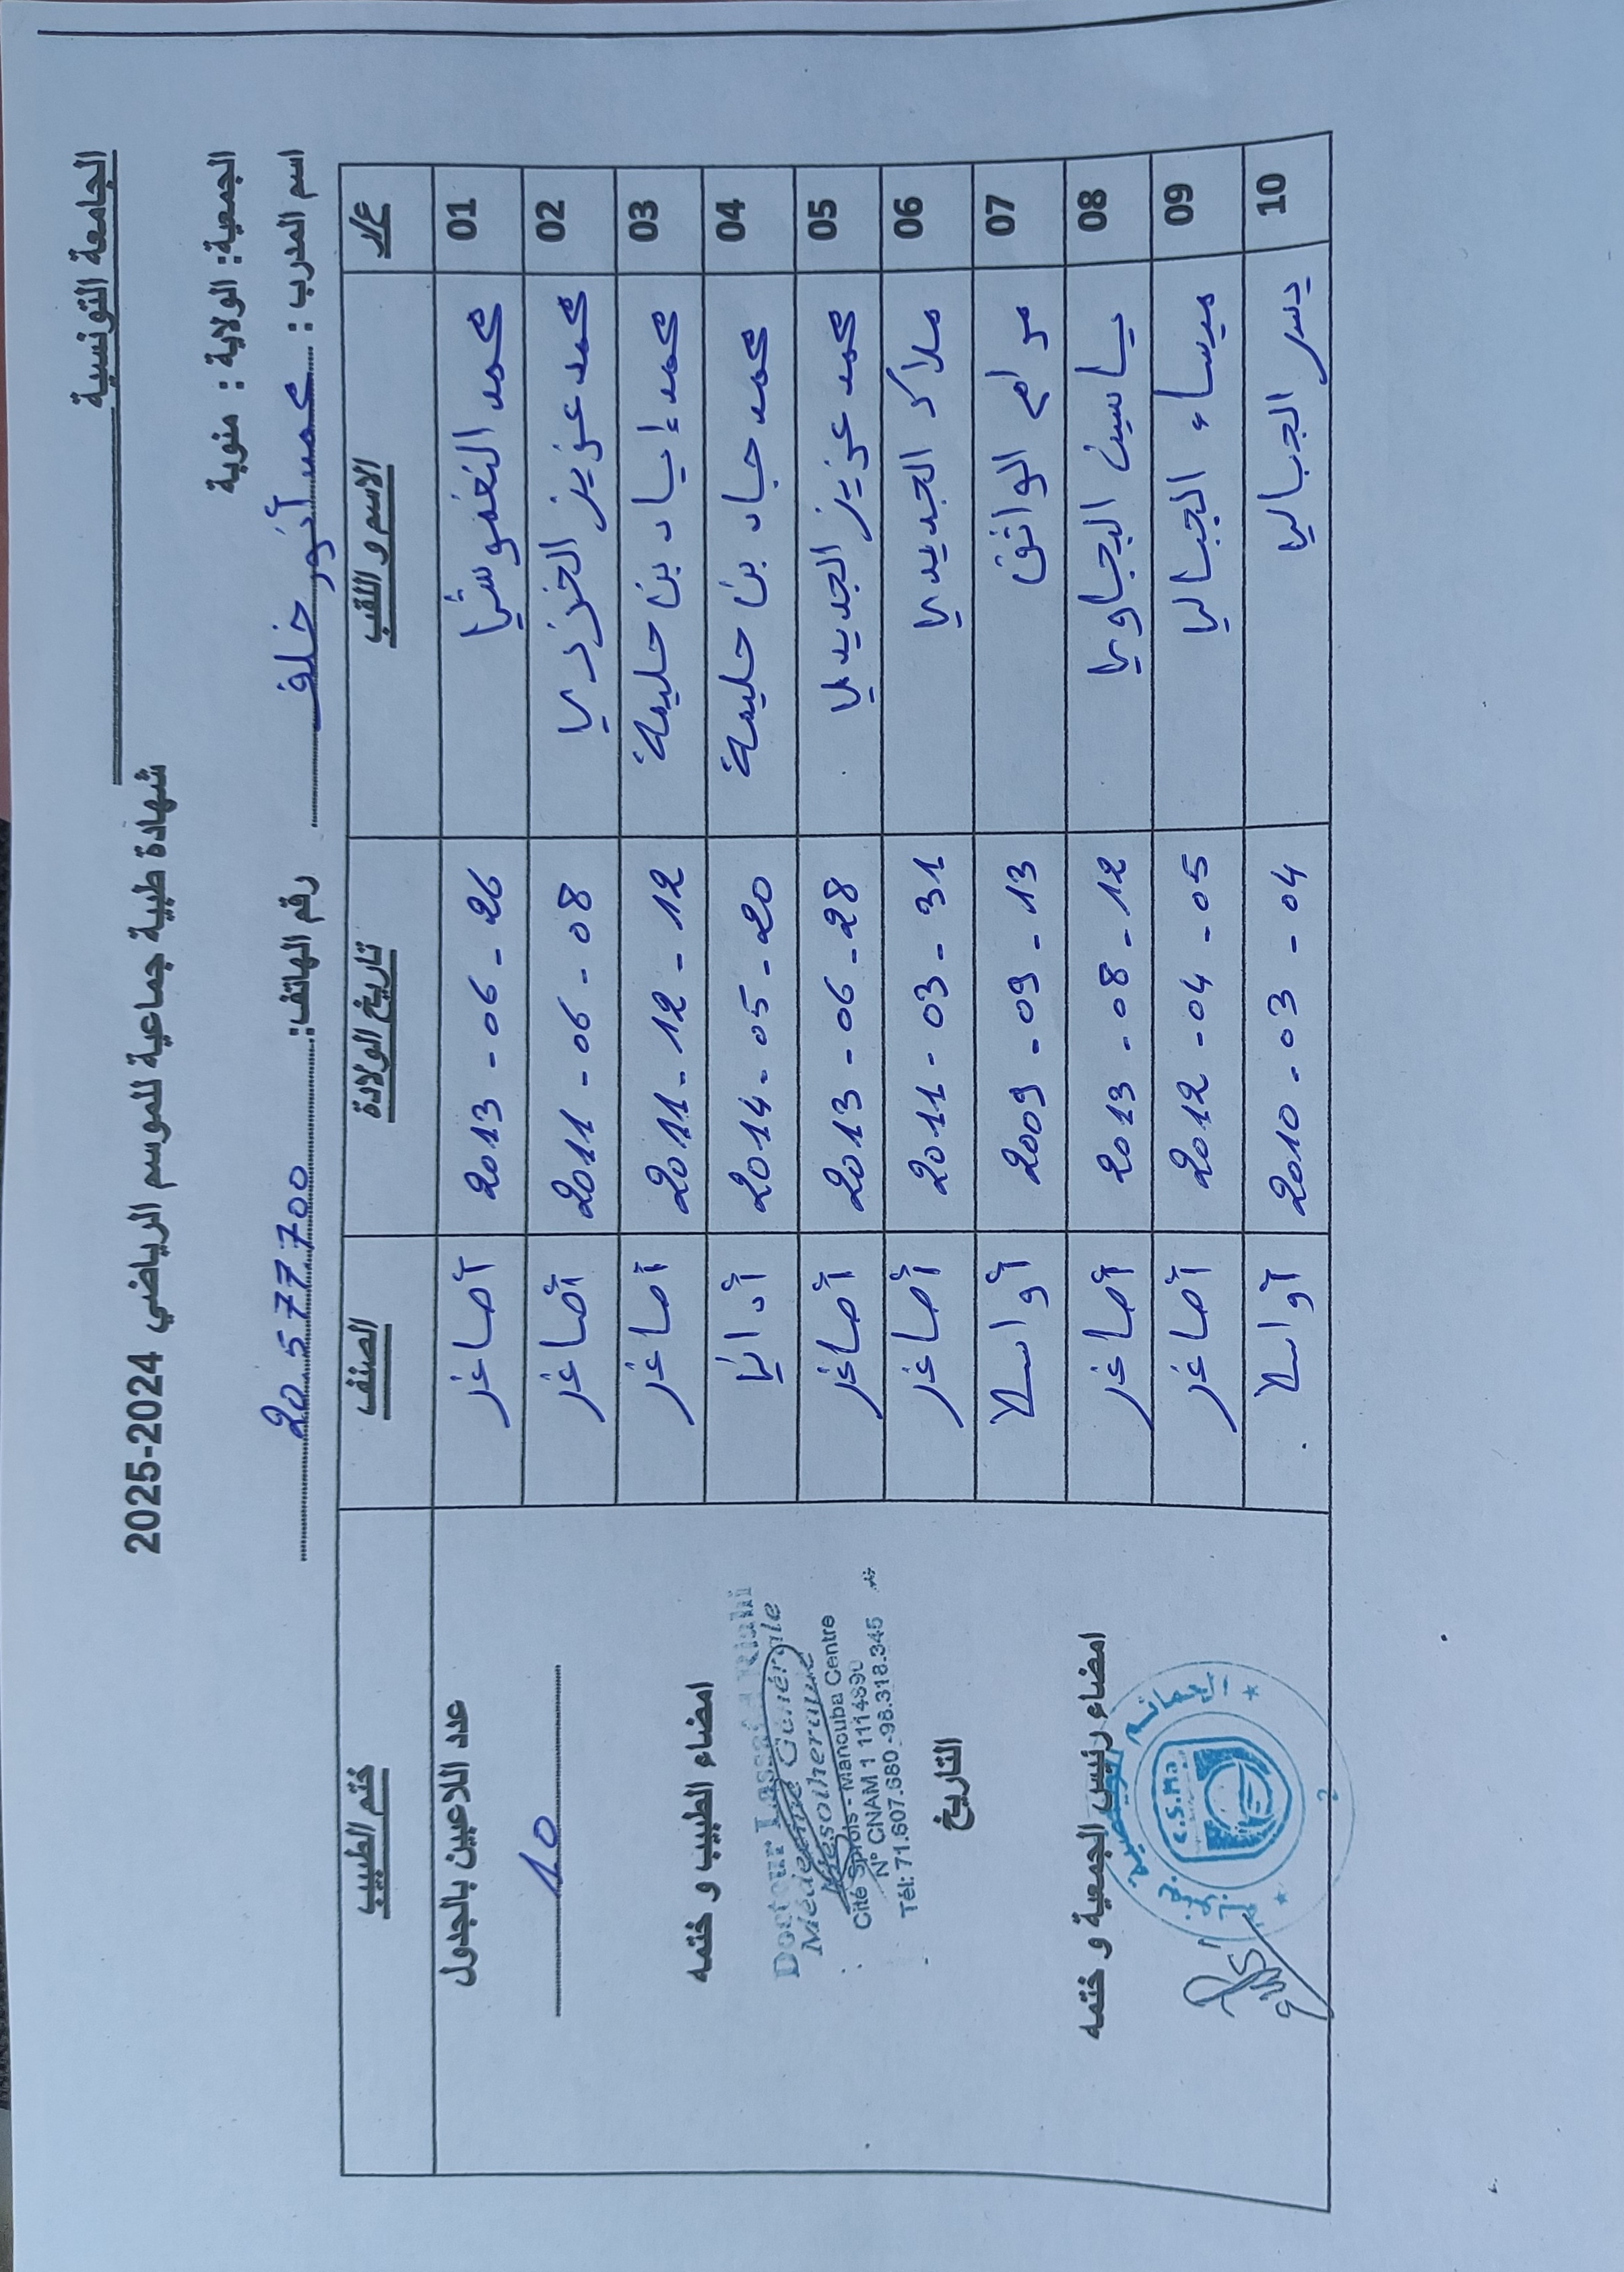 الجامعة التونسية
شهادة طبية جماعية للموسم الرياضي 2024-2025
الجمعية: الولاية : منوبة
اسم المدرب : محمد أنور خلف رقم الهاتف: 20577700
ع/ر الاسم و اللقب تاريخ الولادة الصنف ختم الطبيب
01 محمد النغموشي 2013-06-26 أصاغر
02 محمد عزيز الخزري 2011-06-08 أصاغر
03 محمد إياد بن حليمة 2011-12-12 أصاغر
04 محمد جاد بن حليمة 2014-05-20 أداني
05 محمد عزيز الجديدي 2013-06-28 أصاغر
06 ملاك الجديدي 2011-03-31 أصاغر
07 مرام الواثق 2009-09-13 أواسط
08 ياسين البجاوي 2013-08-12 أصاغر
09 ميساء الجبالي 2012-04-05 أصاغر
10 يسر الجبالي 2010-03-04 أواسط
عدد اللاعبين بالجدول
10
امضاء الطبيب و ختمه
Docteur Lassad Riahi
Médecine Générale
Mésothérapie
Cité Sprols - Manouba Centre
N° CNAM 1 111489
Tél: 71.607.680 - 98.318.345
التاريخ
امضاء رئيس الجمعية و ختمه
C.S.M.